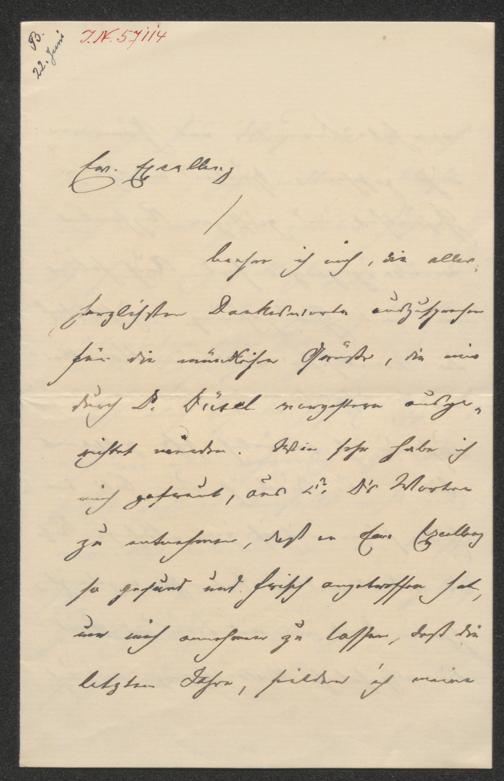 B.
22. Juni
I.N. 57114
Ew. Excellenz
beehre ich mich, die aller-
herzlichsten Dankesworte auszusprechen
für die mündlichen Grüße, die mir
durch Dr. Düsel vorgestern ausge-
richtet wurden. Wie sehr habe ich
mich gefreut, aus Dr. D's Worten
zu entnehmen, daß er Ew. Excellenz
so gesund und frisch angetroffen hat,
um mich annehmen zu lassen, daß die
letzten Jahre, seitdem ich meine